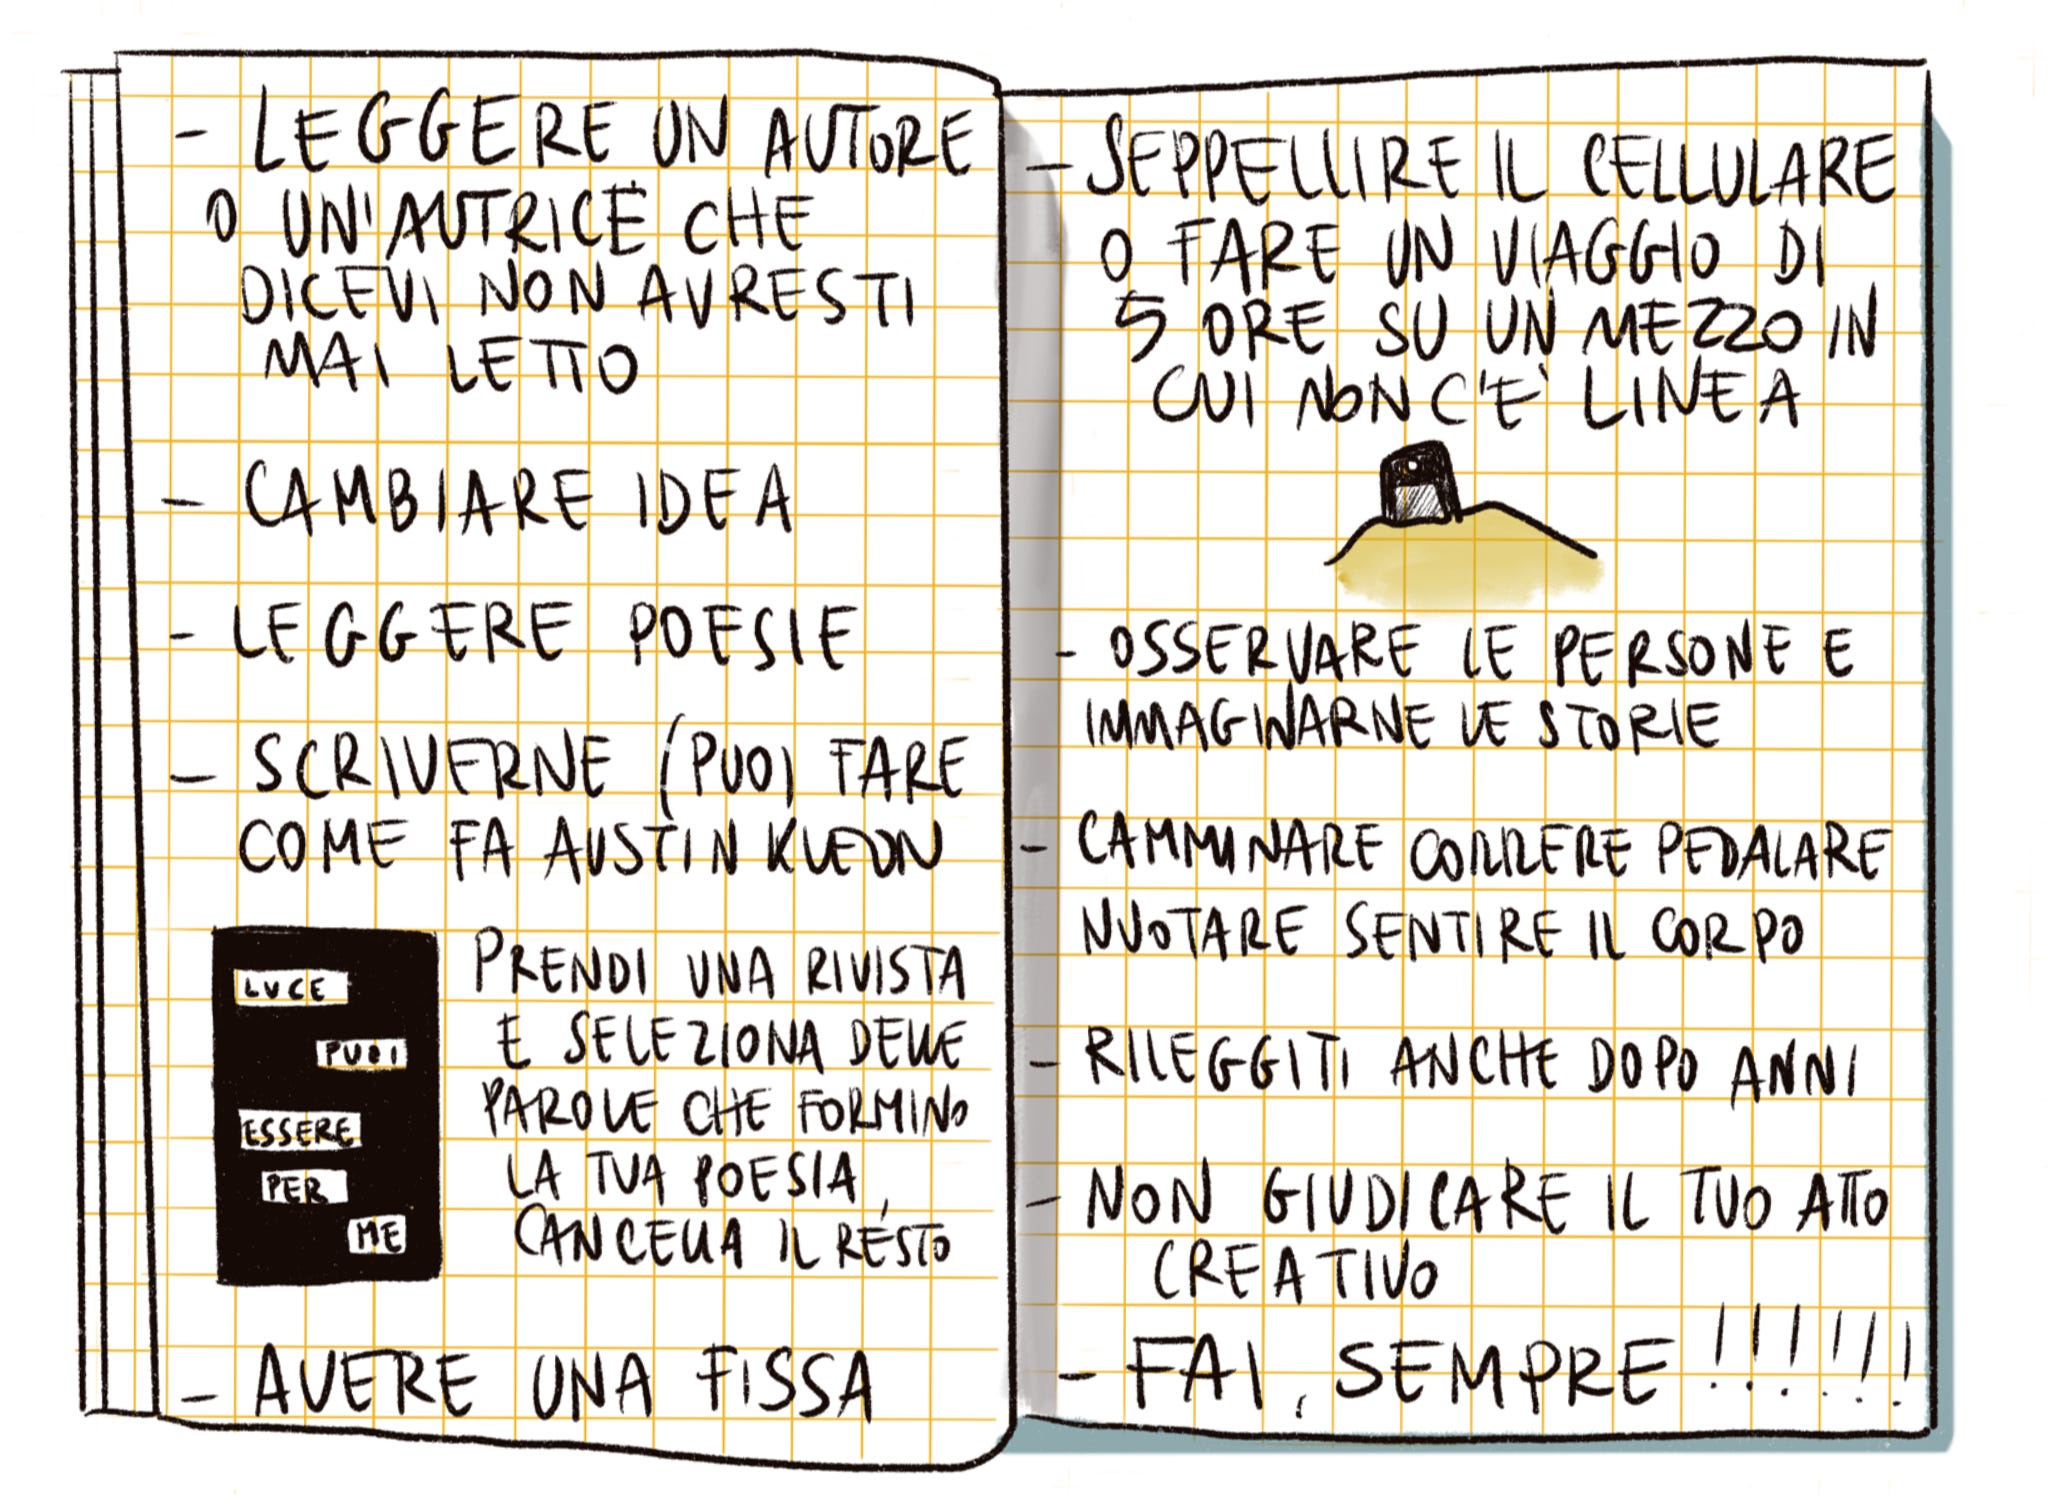 - LEGGERE UN AUTORE
O UN'AUTRICE CHE
DICEVI NON AVRESTI
MAI LETTO
- CAMBIARE IDEA
- LEGGERE POESIE
- SCRIVERNE (PUOI FARE
COME FA AUSTIN KLEON
LUCE
PUOI
ESSERE
PER
ME
PRENDI UNA RIVISTA
E SELEZIONA DELLE
PAROLE CHE FORMINO
LA TUA POESIA,
CANCELLA IL RESTO
- AVERE UNA FISSA
- SEPPELLIRE IL CELLULARE
O FARE UN VIAGGIO DI
5 ORE SU UN MEZZO IN
CUI NON C'E' LINEA
- OSSERVARE LE PERSONE E
IMMAGINARNE LE STORIE
- CAMMINARE CORRERE PEDALARE
NUOTARE SENTIRE IL CORPO
- RILEGGITI ANCHE DOPO ANNI
- NON GIUDICARE IL TUO ATTO
CREATIVO
- FAI, SEMPRE !!!!!!